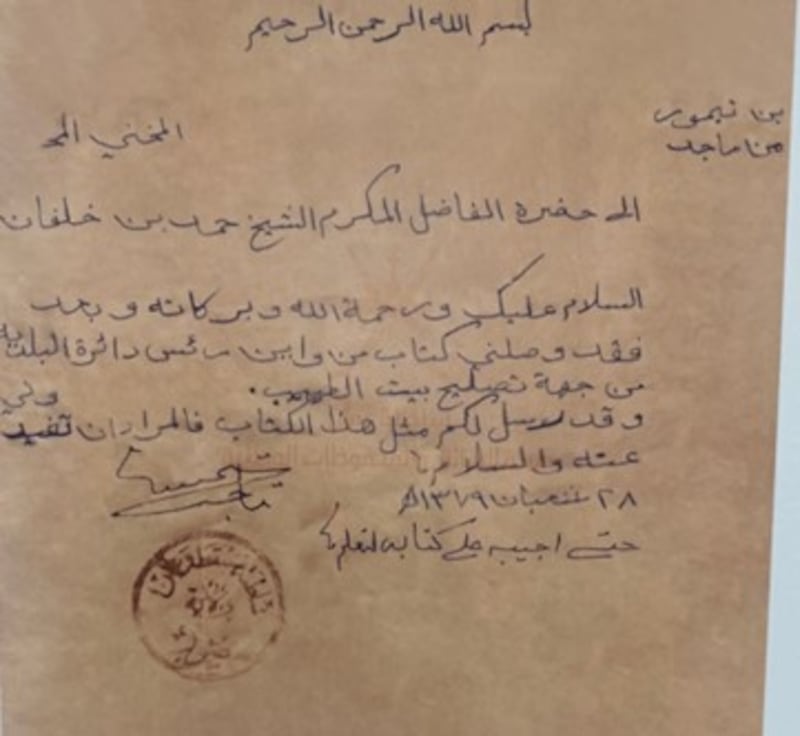 بسم الله الرحمن الرحيم
بن تيمور
من ماجد
المخني المح
الى حضرة الفاضل المكرم الشيخ حمد بن خلفان
السلام عليك ورحمة الله وبركاته وبعد
فقد وصلني كتاب من واين رئس دائرة البلدية
من جهة تصليح بيت الطبيب.
ولي
وقد لرسل لكم مثل هذا الكتاب فالمراد ان تفيد
عنه والسلام
٢٨ شعبان ١٣٧٩هـ
ماجد
حتى اجيبه على كتابه لتعلم